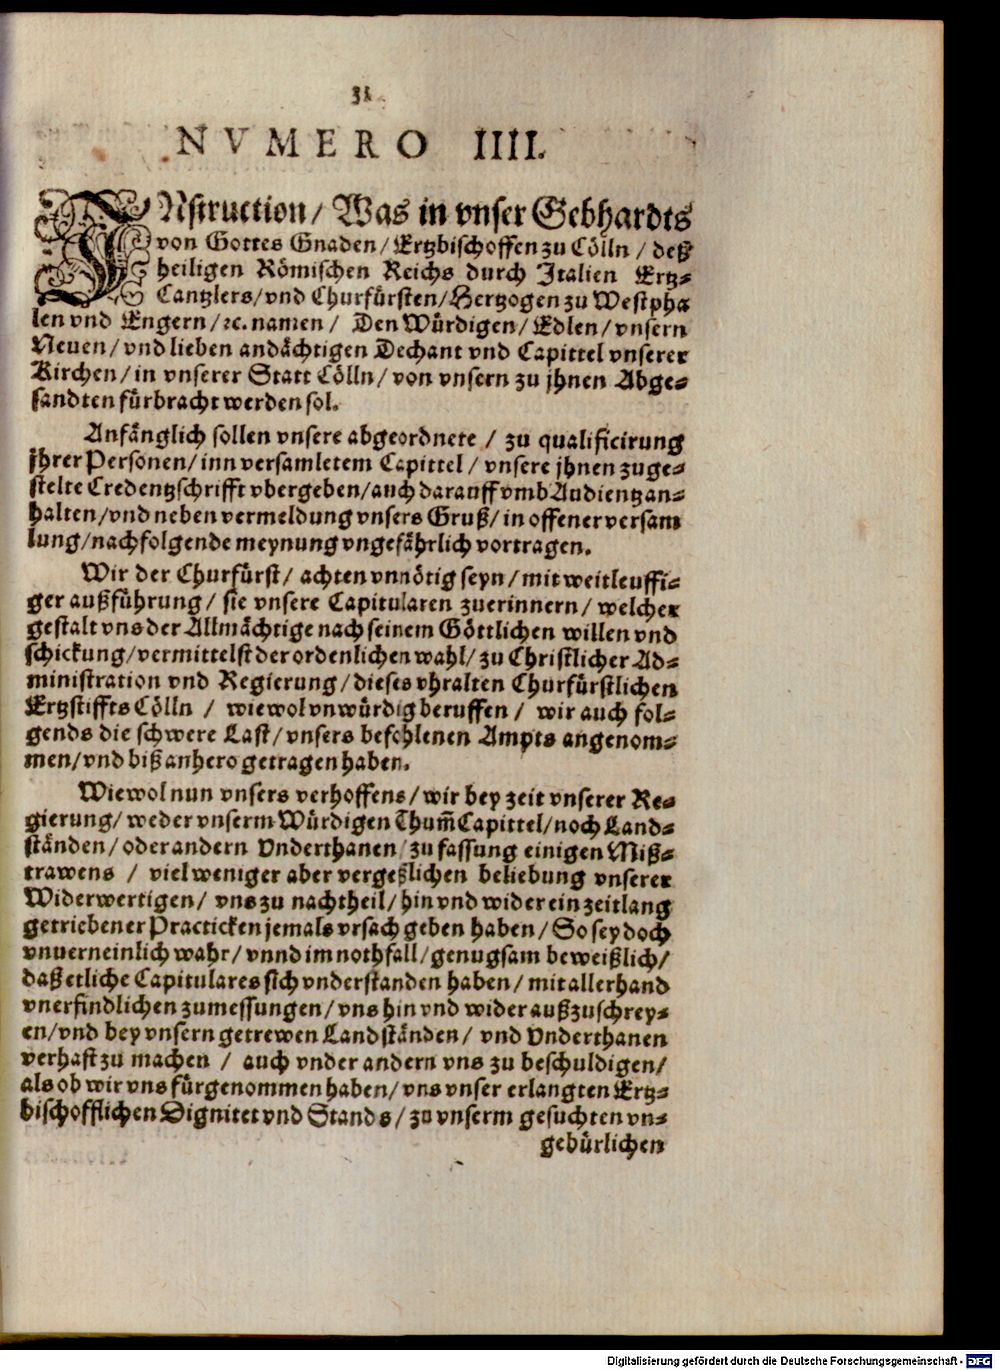 31
NVMERO IIII.
INstruction / Was in vnser Gebhardts
von Gottes Gnaden / Ertzbischoffen zu Cölln / deß
heiligen Römischen Reichs durch Italien Ertz-
Cantzlers / vnd Churfürsten / Hertzogen zu Westpha
len vnd Engern / ꝛc. namen / Den Würdigen / Edlen / vnsern
Neuen / vnd lieben andächtigen Dechant vnd Capittel vnserer
Kirchen / in vnserer Statt Cölln / von vnsern zu jhnen Abge-
sandten fürbracht werden sol.
Anfänglich sollen vnsere abgeordnete / zu qualificirung
jhrer Personen / inn versamletem Capittel / vnsere jhnen zuge-
stelte Credentzschrifft vbergeben / auch darauff vmb Audientz an-
halten / vnd neben vermeldung vnsers Gruß / in offener versam
lung / nachfolgende meynung vngefährlich vortragen.
Wir der Churfürst / achten vnnötig seyn / mit weitleuffi-
ger außführung / sie vnsere Capitularen zuerinnern / welcher
gestalt vns der Allmächtige nach seinem Göttlichen willen vnd
schickung / vermittelst der ordenlichen wahl / zu Christlicher Ad-
ministration vnd Regierung / dieses vhralten Churfürstlichen
Ertzstiffts Cölln / wiewol vnwürdig beruffen / wir auch fol-
gends die schwere Last / vnsers befohlenen Ampts angenom-
men / vnd biß anhero getragen haben.
Wiewol nun vnsers verhoffens / wir bey zeit vnserer Re-
gierung / weder vnserm Würdigen Thum̃ Capittel / noch Land-
ständen / oder andern Vnderthanen / zu fassung einigen Miß-
trawens / viel weniger aber vergeßlichen beliebung vnserer
Widerwertigen / vns zu nachtheil / hin vnd wider ein zeitlang
getriebener Practicken jemals vrsach geben haben / So sey doch
vnuerneinlich wahr / vnnd im nothfall / genugsam beweißlich /
daß etliche Capitulares sich vnderstanden haben / mit allerhand
vnerfindlichen zumessungen / vns hin vnd wider außzuschrey-
en / vnd bey vnsern getrewen Landständen / vnd Vnderthanen
verhast zu machen / auch vnder andern vns zu beschuldigen /
als ob wir vns fürgenommen haben / vns vnser erlangten Ertz-
bischofflichen Dignitet vnd Stands / zu vnserm gesuchten vn-
gebürlichen
Digitalisierung gefördert durch die Deutsche Forschungsgemeinschaft - DFG